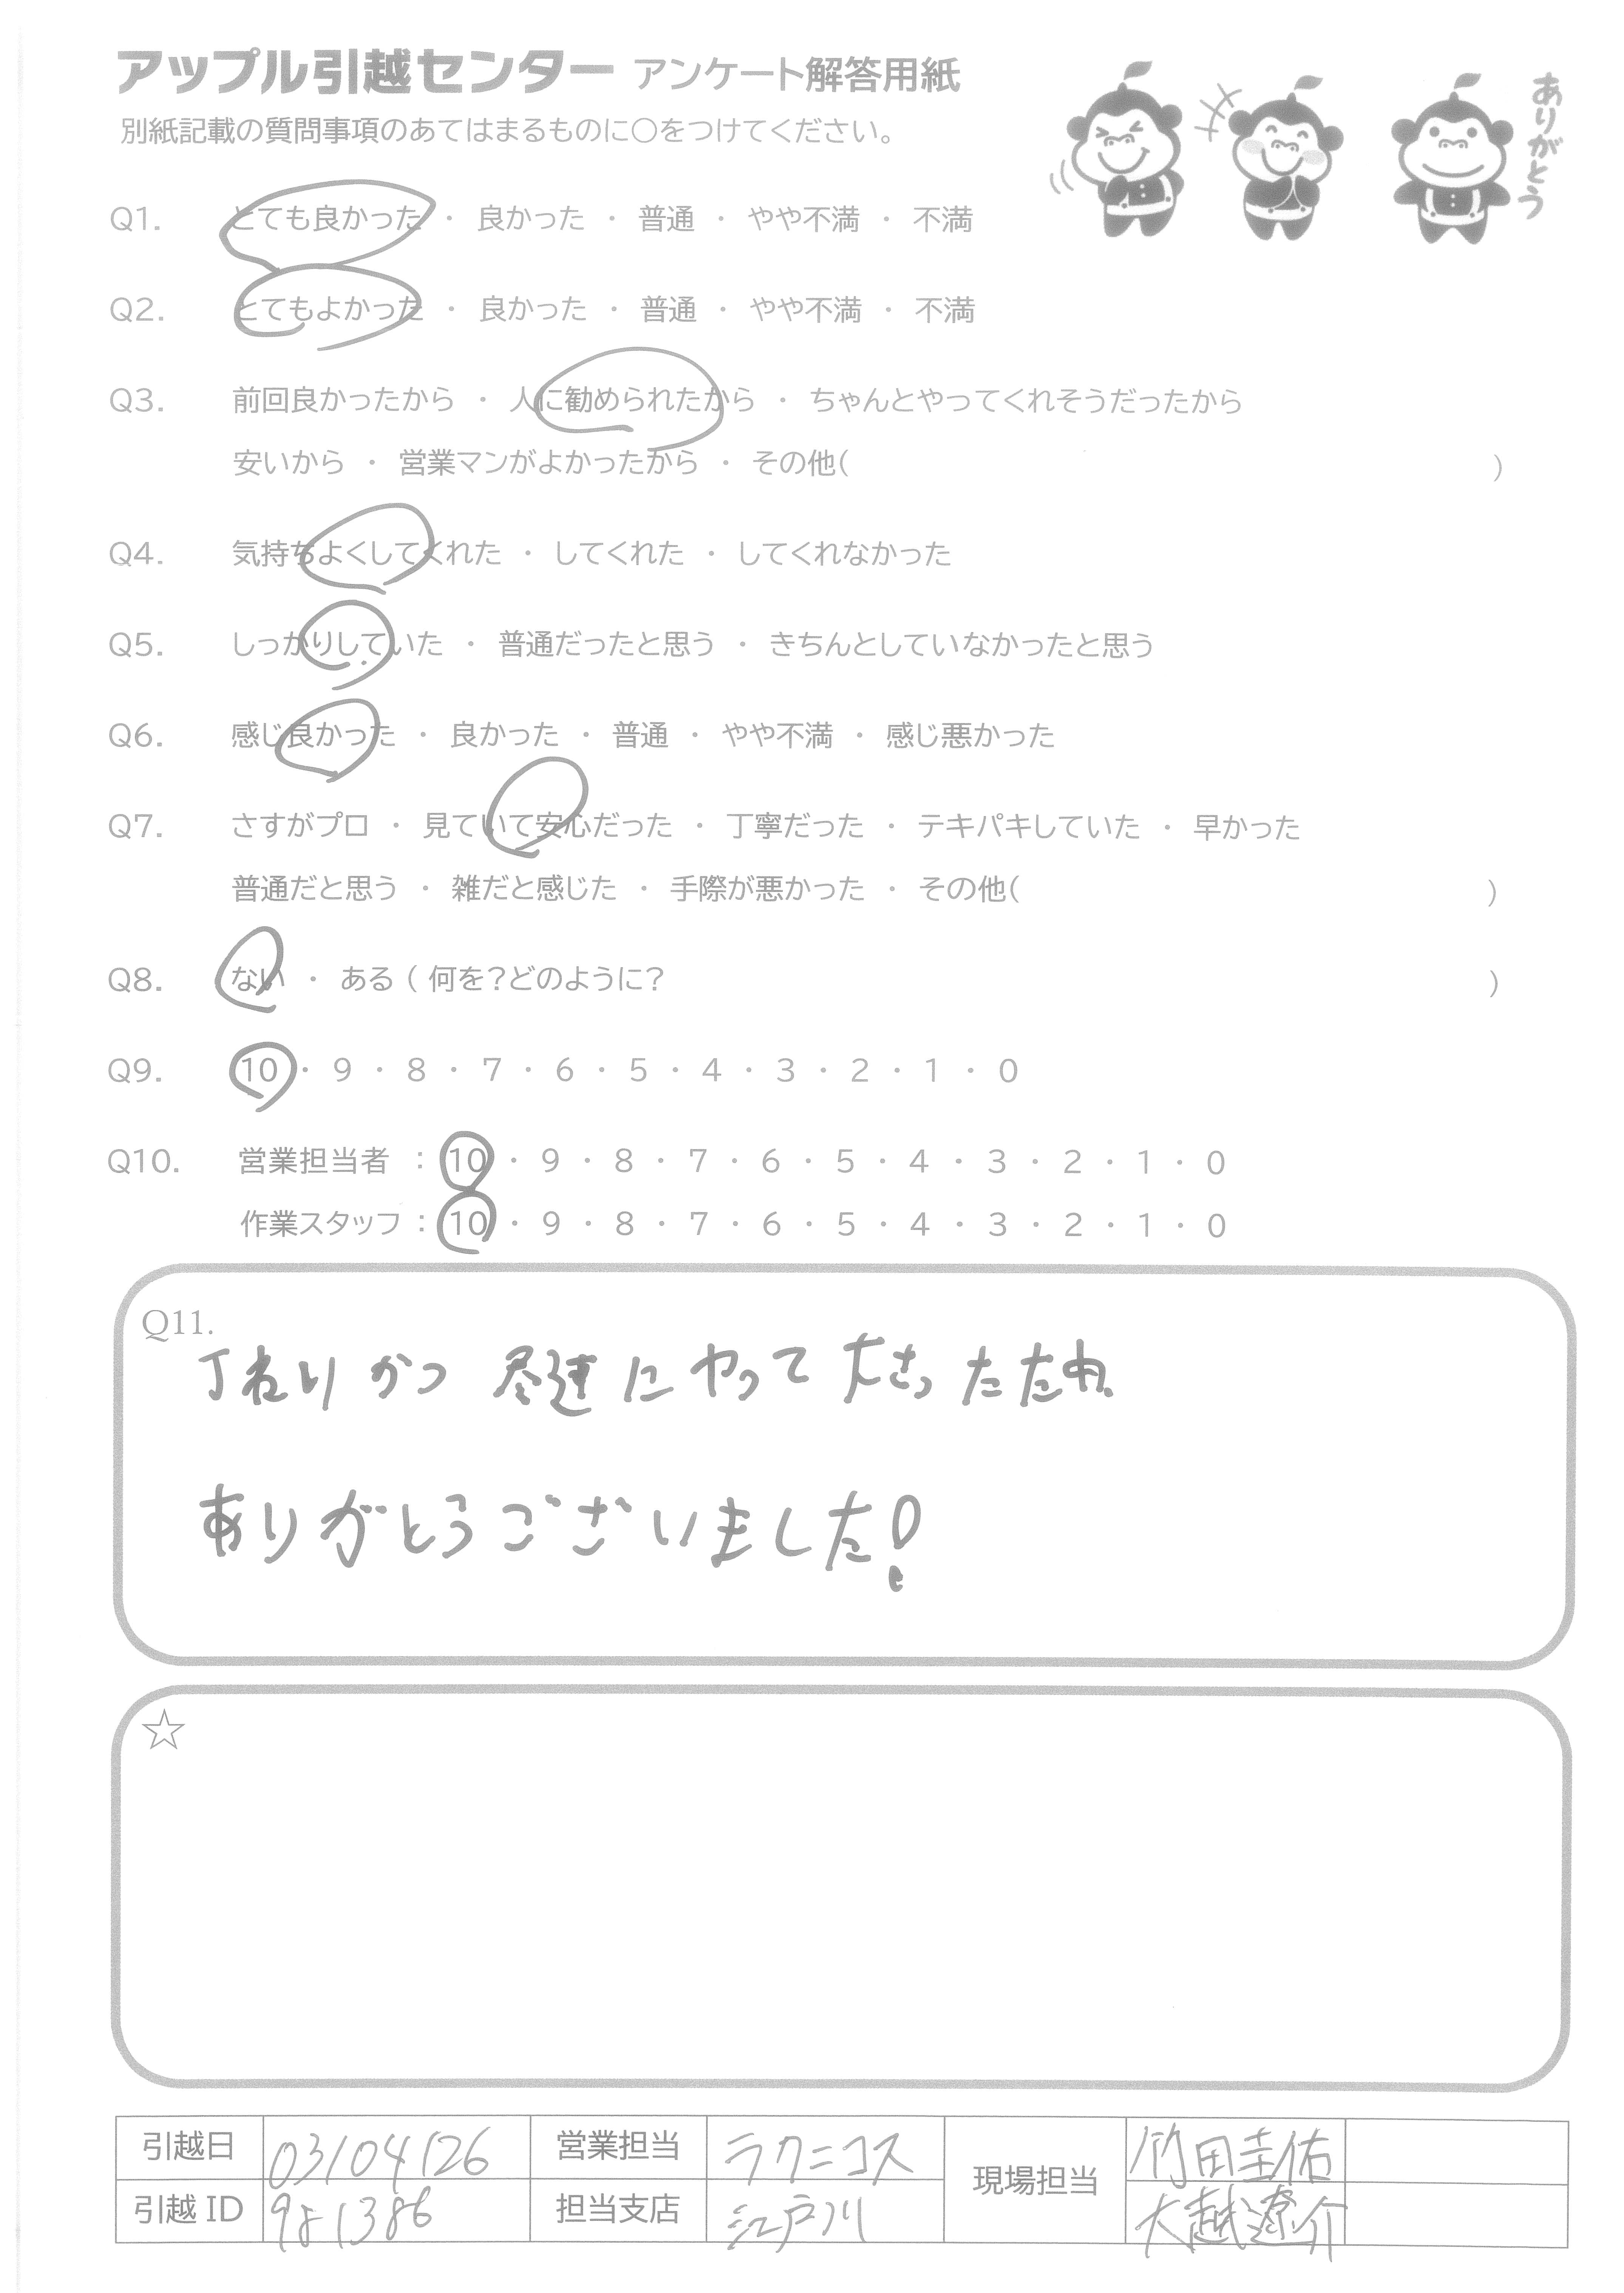 アップル引越センター アンケート解答用紙
別紙記載の質問事項のあてはまるものに○をつけてください。
ありがとう
Q1. とても良かった ・ 良かった ・ 普通 ・ やや不満 ・ 不満
Q2. とてもよかった ・ 良かった ・ 普通 ・ やや不満 ・ 不満
Q3. 前回良かったから ・ 人に勧められたから ・ ちゃんとやってくれそうだったから
安いから ・ 営業マンがよかったから ・ その他( )
Q4. 気持ちよくしてくれた ・ してくれた ・ してくれなかった
Q5. しっかりしていた ・ 普通だったと思う ・ きちんとしていなかったと思う
Q6. 感じ良かった ・ 良かった ・ 普通 ・ やや不満 ・ 感じ悪かった
Q7. さすがプロ ・ 見ていて安心だった ・ 丁寧だった ・ テキパキしていた ・ 早かった
普通だと思う ・ 雑だと感じた ・ 手際が悪かった ・ その他( )
Q8. ない ・ ある ( 何を?どのように? )
Q9. 10 ・ 9 ・ 8 ・ 7 ・ 6 ・ 5 ・ 4 ・ 3 ・ 2 ・ 1 ・ 0
Q10. 営業担当者 : 10 ・ 9 ・ 8 ・ 7 ・ 6 ・ 5 ・ 4 ・ 3 ・ 2 ・ 1 ・ 0
作業スタッフ : 10 ・ 9 ・ 8 ・ 7 ・ 6 ・ 5 ・ 4 ・ 3 ・ 2 ・ 1 ・ 0
Q11.
かつ にやって
ありがとうございました!
☆
引越日 03/04/26 営業担当 ラクニコス 現場担当 竹田圭佑
引越 ID 担当支店 江戸川 大越遼介